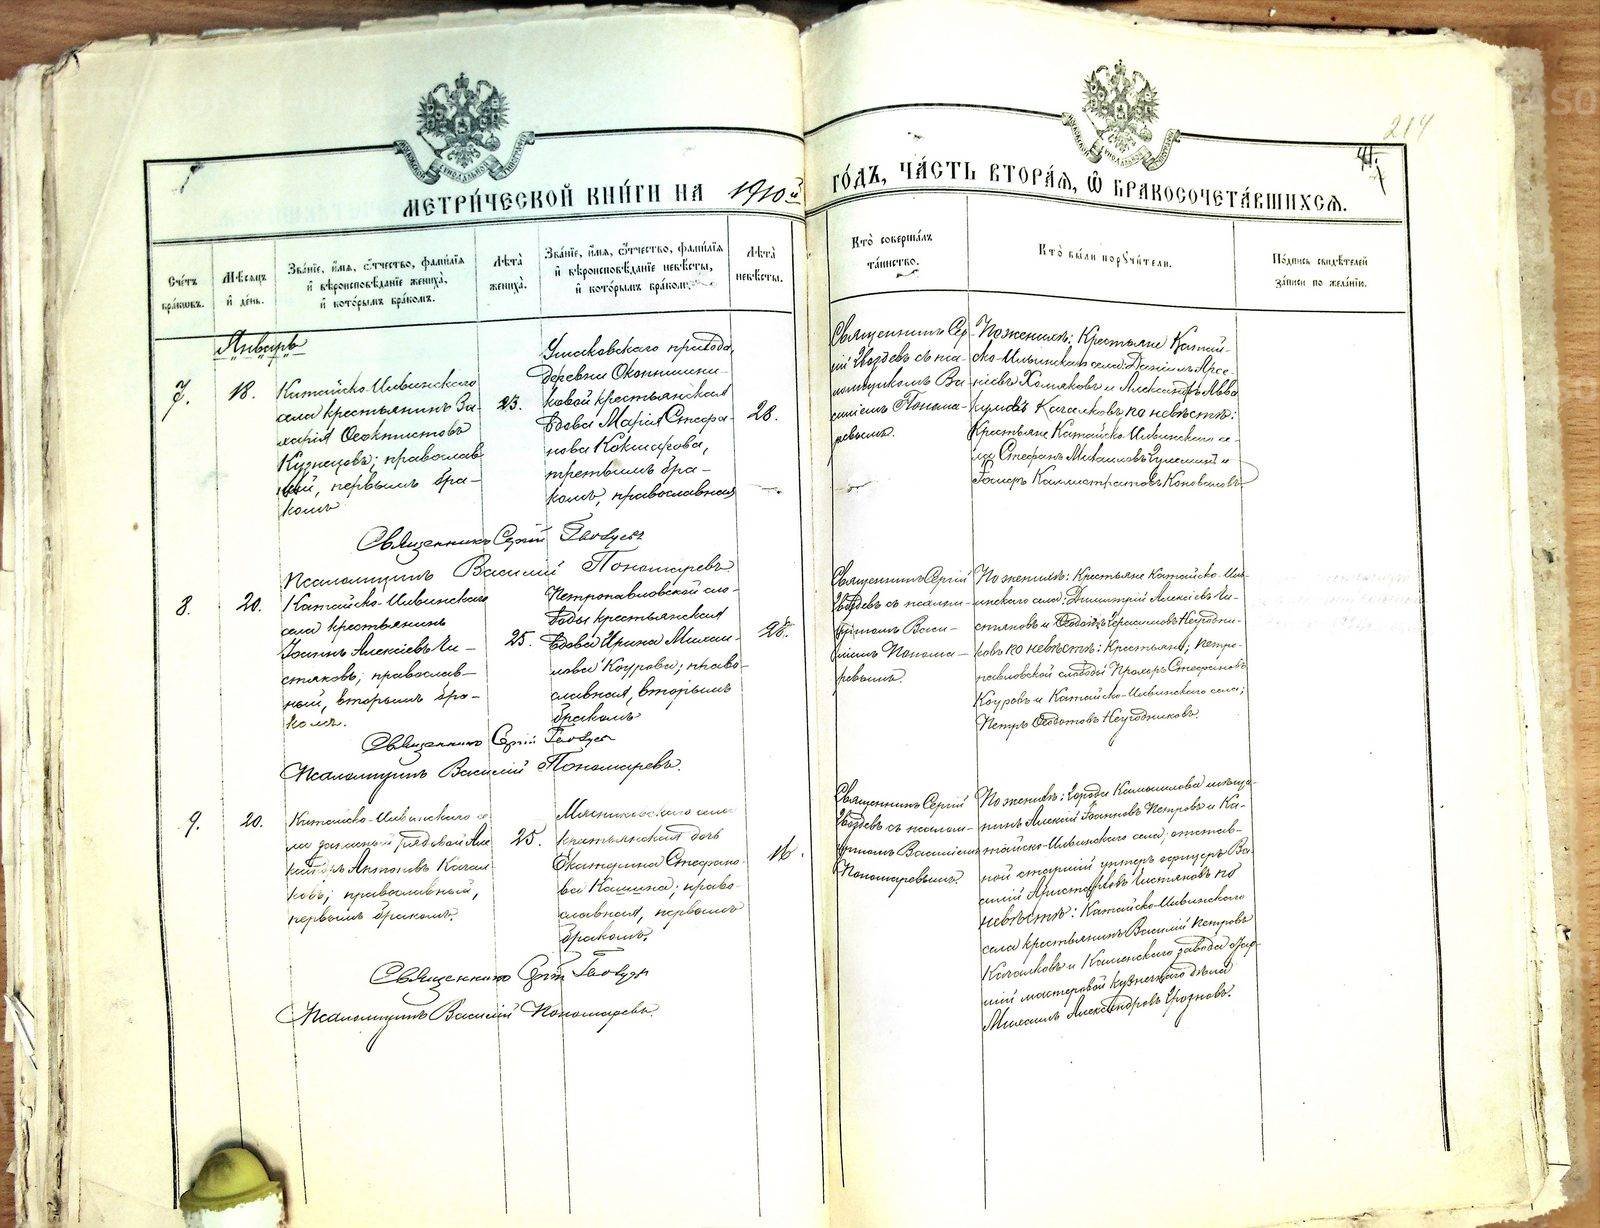 МЕТРИ́ЧЕСКОЙ КНИ́ГИ НА 1910й
ГО́ДЪ, ЧА́СТЬ ВТОРА́Я, Ѡ БРАКОСОЧЕТА́ВШИХСЯ.
214
41.
Сче́тъ бра́ковъ.
Мѣ́сяцъ и де́нь.
Зва́нїе, и́мя, о́тчество, фами́лїя и вѣроисповѣ́данїе жениха̀, и кото́рымъ бра́комъ.
Лѣ́та жениха̀.
Зва́нїе, и́мя, о́тчество, фами́лїя и вѣроисповѣ́данїе невѣ́сты, и кото́рымъ бра́комъ.
Лѣ́та невѣ́сты.
Кто̀ соверша́лъ та́инство.
Кто̀ бы́ли поручи́тели.
По́дпись свидѣ́телей за́писи по жела́нїю.
Январь
7.
18.
Катайско-Ильинскаго
села крестьянинъ За-
харія Ѳеоктистовъ
Кузнецовъ; православ
ный, первымъ бра-
комъ
23.
прихода,
деревни
ковой крестьянская
вдова Марія Стефа-
нова Кокшарова,
третьимъ бра-
комъ, православная
28.
Священникъ Сер-
гій Гвоздевъ съ пса-
ломщикомъ Ва-
силіемъ Понома-
ревымъ.
По женихѣ: Крестьяне Катай-
ско-Ильинскаго села: Даніилъ Арсе-
ніевъ Хомяковъ и Александръ Авва
кумовъ Качалковъ по невѣстѣ:
Крестьяне Катайско-Ильинскаго се-
ла Стефанъ Михаиловъ и
Каллистратовъ Коноваловъ
Священникъ Сергій Гвоздевъ
Псаломщикъ Василій Пономаревъ
8.
20.
Катайско-Ильинскаго
села крестьянинъ
Іоаннъ Алексіевъ Чи-
стяковъ; православ-
ный, вторымъ бра-
комъ.
25.
Петропавловской сло-
боды крестьянская
вдова Ирина Михаи-
лова Коурова; право-
славная, вторымъ
бракомъ
28.
Священникъ Сергій
Гвоздевъ съ псалом-
щикомъ Васи-
ліемъ Понома-
ревымъ.
По женихѣ: Крестьяне Катайско-Иль-
инскаго села: Димитрій Алексіевъ Чи-
стяковъ и Ѳеодотъ Герасимовъ Неугодни-
ковъ по невѣстѣ: Крестьяне; петро-
павловской слободы Прохоръ Стефановъ
Коуровъ и Катайско-Ильинскаго села;
Петръ Ѳеодотовъ Неугодниковъ.
Священникъ Сергій Гвоздевъ
Псаломщикъ Василій Пономаревъ.
9.
20.
Катайско-Ильинскаго се
ла запасный рядовой Але
ксандръ Антоновъ Качал
ковъ; православный,
первымъ бракомъ.
25.
крестьянская дочь
Екатерина Стефано-
ва Кашина; право-
славная, первымъ
бракомъ.
16.
Священникъ Сергій
Гвоздевъ съ псалом-
щикомъ Василіемъ
Пономаревымъ.
По женихѣ: Города Камышлова мѣща-
нинъ Алексій Іоанновъ Петровъ и Ка-
тайско-Ильинскаго села, отстав-
ной старшій унтеръ офицеръ Ва-
силій Аристарховъ Чистяковъ по
невѣстѣ: Катайско-Ильинскаго
села крестьянинъ Василій Петровъ
Качалковъ и Каменскаго завода
мастеровой кузнечнаго дѣла
Михаилъ Александровъ Грозновъ.
Священникъ Сергій Гвоздевъ
Псаломщикъ Василій Пономаревъ.